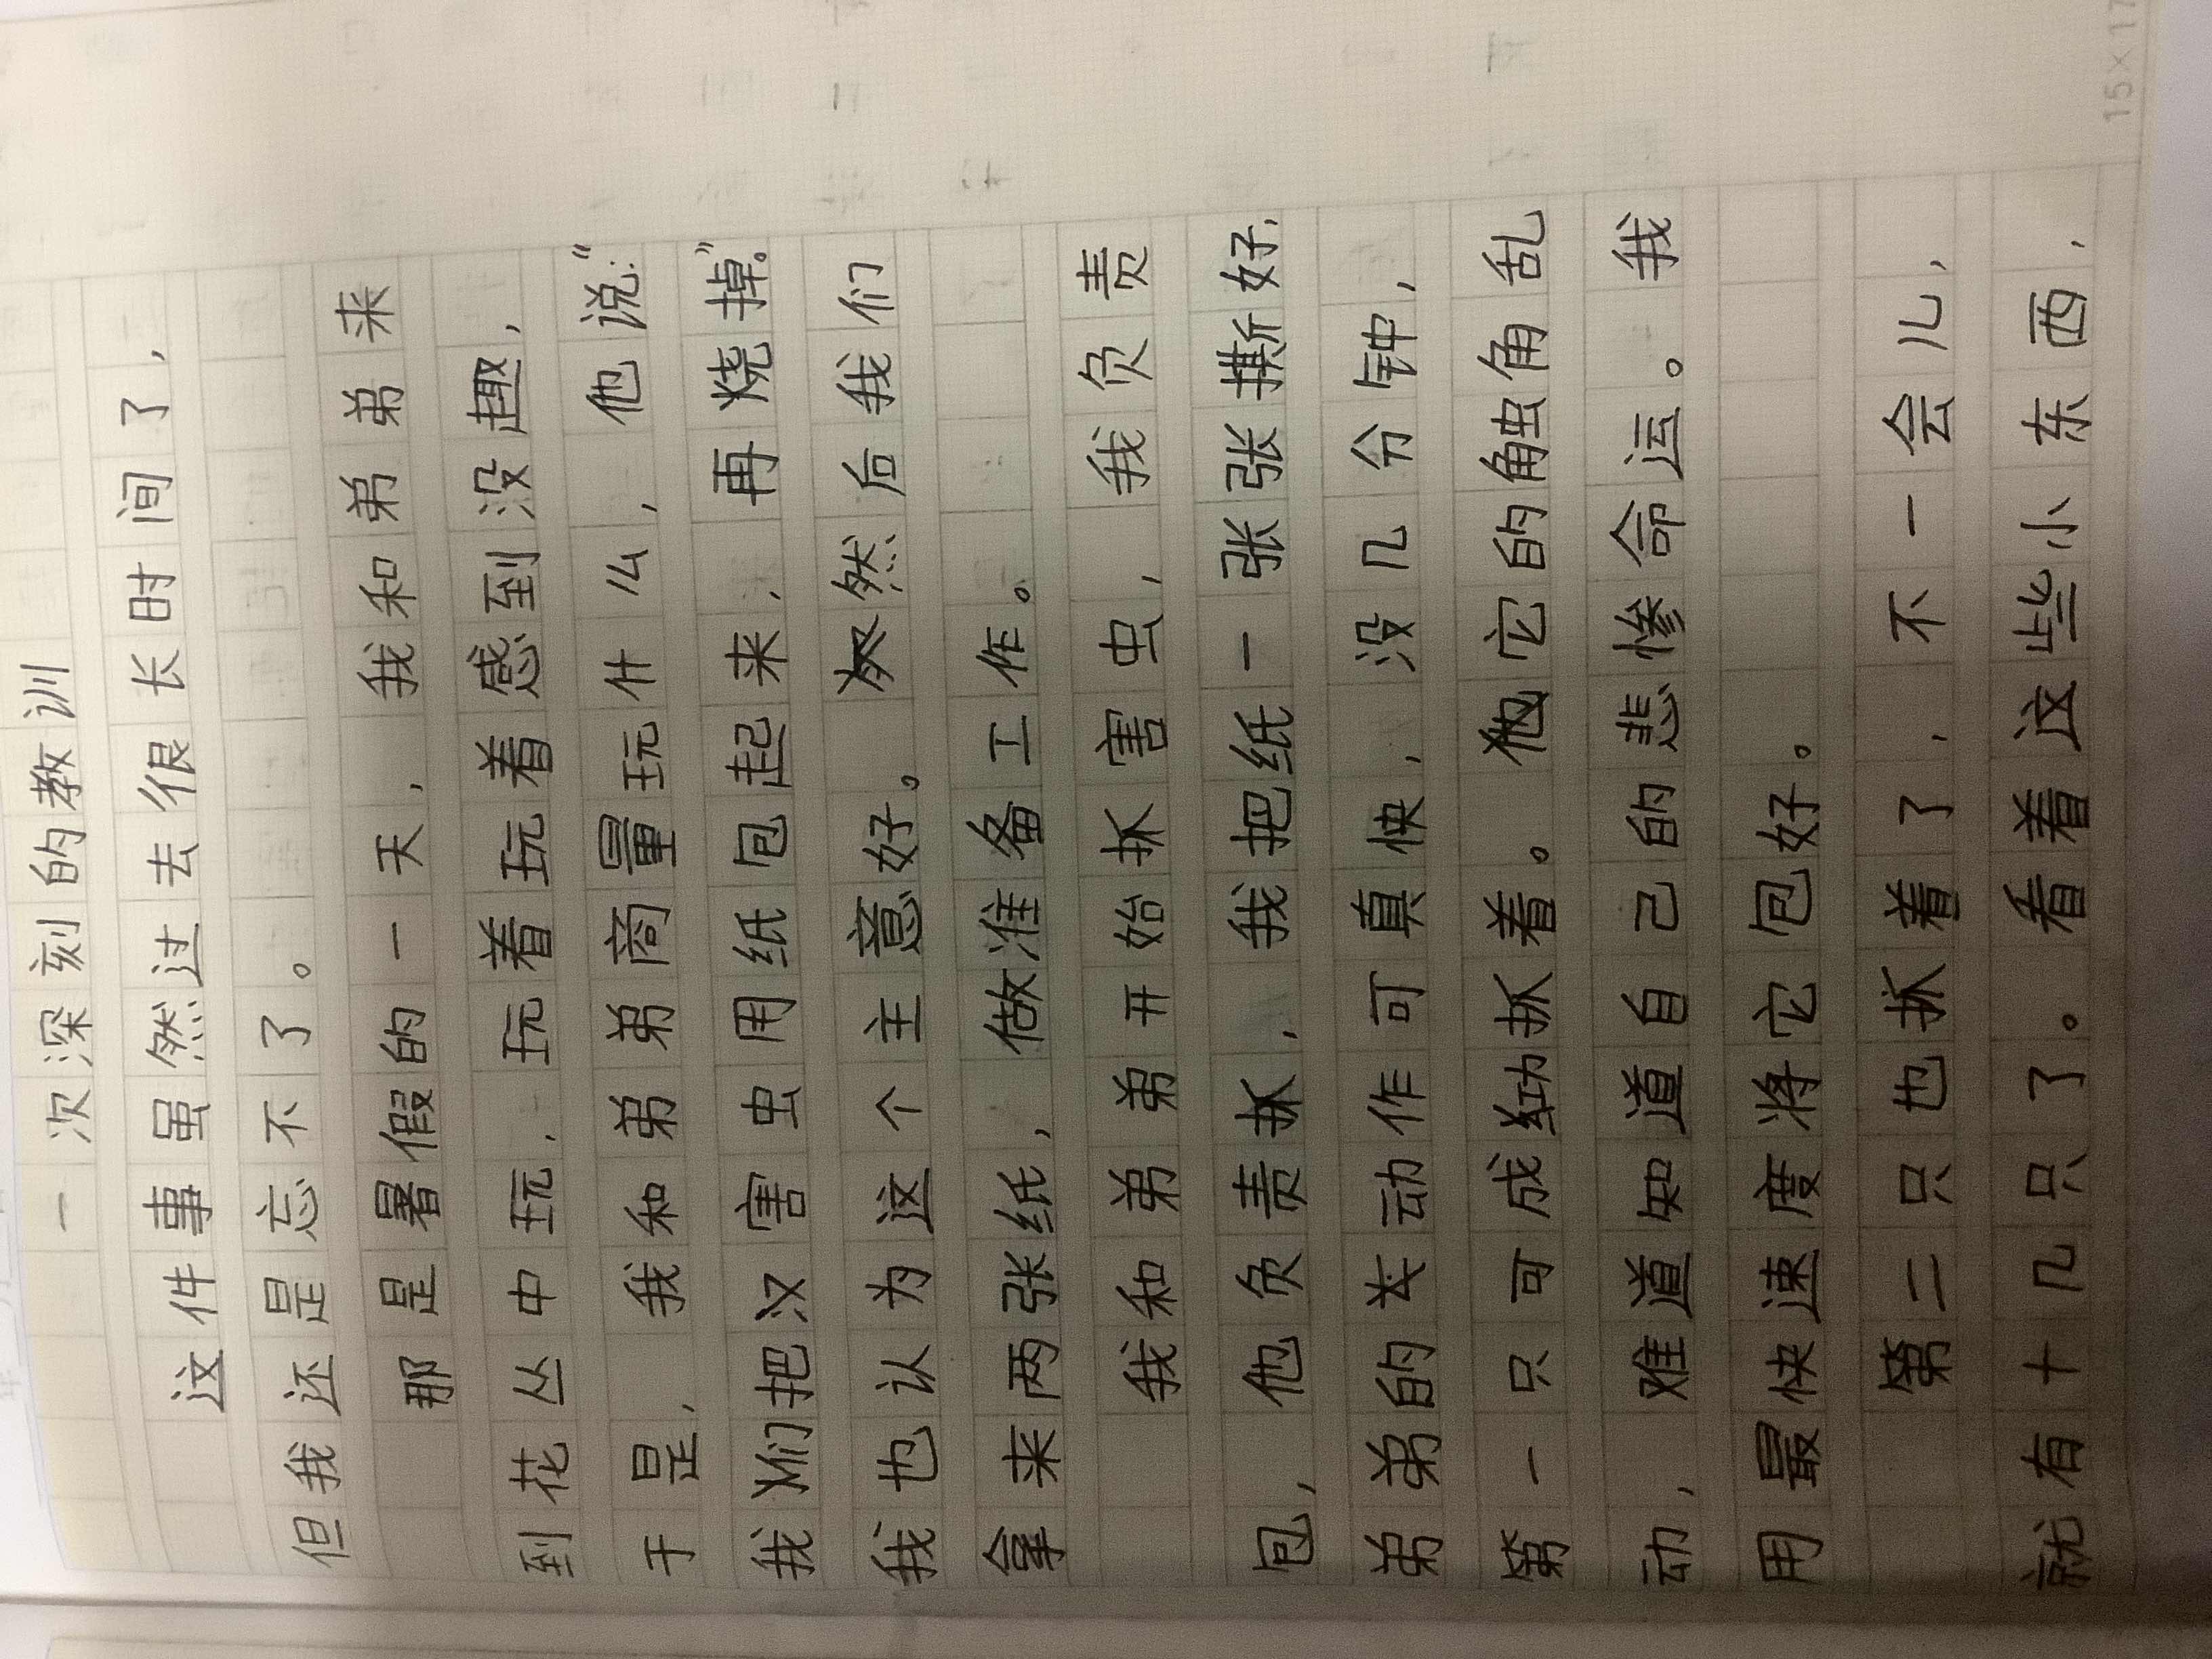 一次深刻的教训
这件事虽然过去很长时间了，
但我还是忘不了。
那是暑假的一天，我和弟弟来
到花丛中玩，玩着玩着感到没趣，
于是，我和弟弟商量玩什么，他说：“
我们把汉害虫用纸包起来，再烧掉。”
我也认为这个主意好。然后我们
拿来两张纸，做准备工作。
我和弟弟开始抓害虫，我负责
包，他负责抓，我把纸一张张撕好，
弟弟的动作可真快，没几分钟，
第一只可成幼抓着。它的触角乱
动，难道知道自己的悲惨命运。我
用最快速度将它包好。
第二只也抓着了，不一会儿，
就有十几只了。看着这些小东西，
15×17